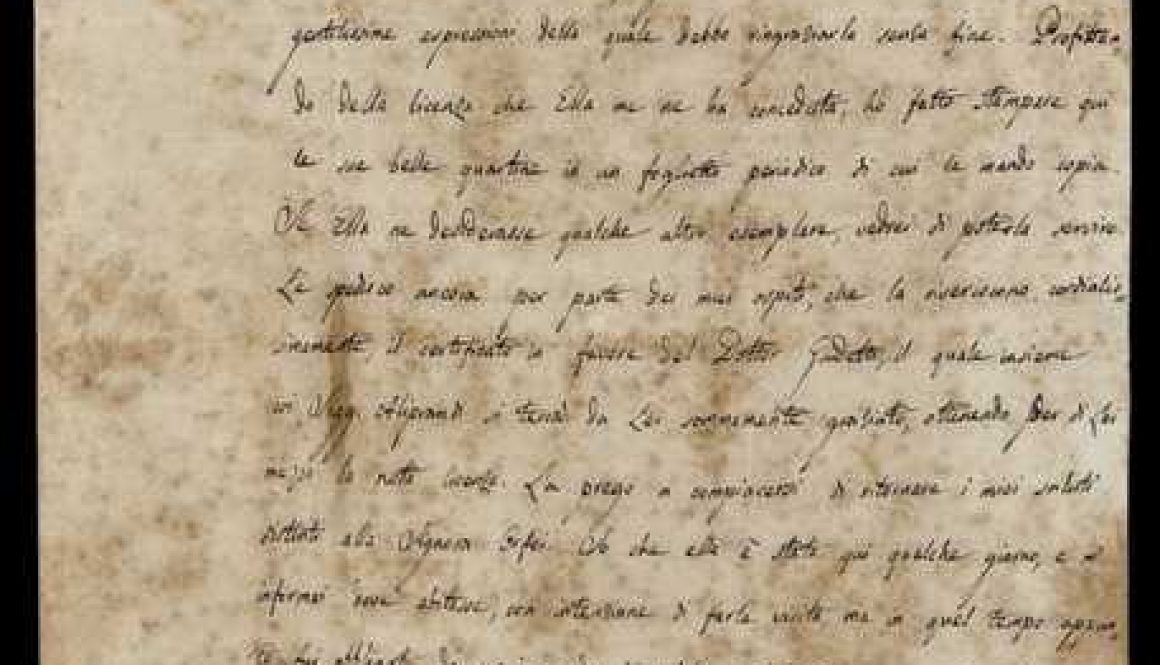 gentilissime espressioni della quale debbo ringraziarla senza fine. Profittan-
do della licenza che Ella me ne ha conceduta, ho fatto stampare qui
le sue belle quartine in un foglietto periodico di cui le mando copia.
Se Ella ne desiderasse qualche altro esemplare, vedrei di poterla servire.
Le spedisco ancora per parte dei miei ospiti, che la riveriscono cordialis-
simamente, il certificato in favore del Dottor il quale insieme
coi Sigg. Aliprandi si terrà da Lei sommamente graziato, ottenendo per di Lei
mezzo la nota licenza. La prego a compiacersi di ritornare i miei saluti
distinti alla Signora So che ella è stata qui qualche giorno, e
informai dove abitasse, con intenzione di farle visita ma in quel tempo appun-